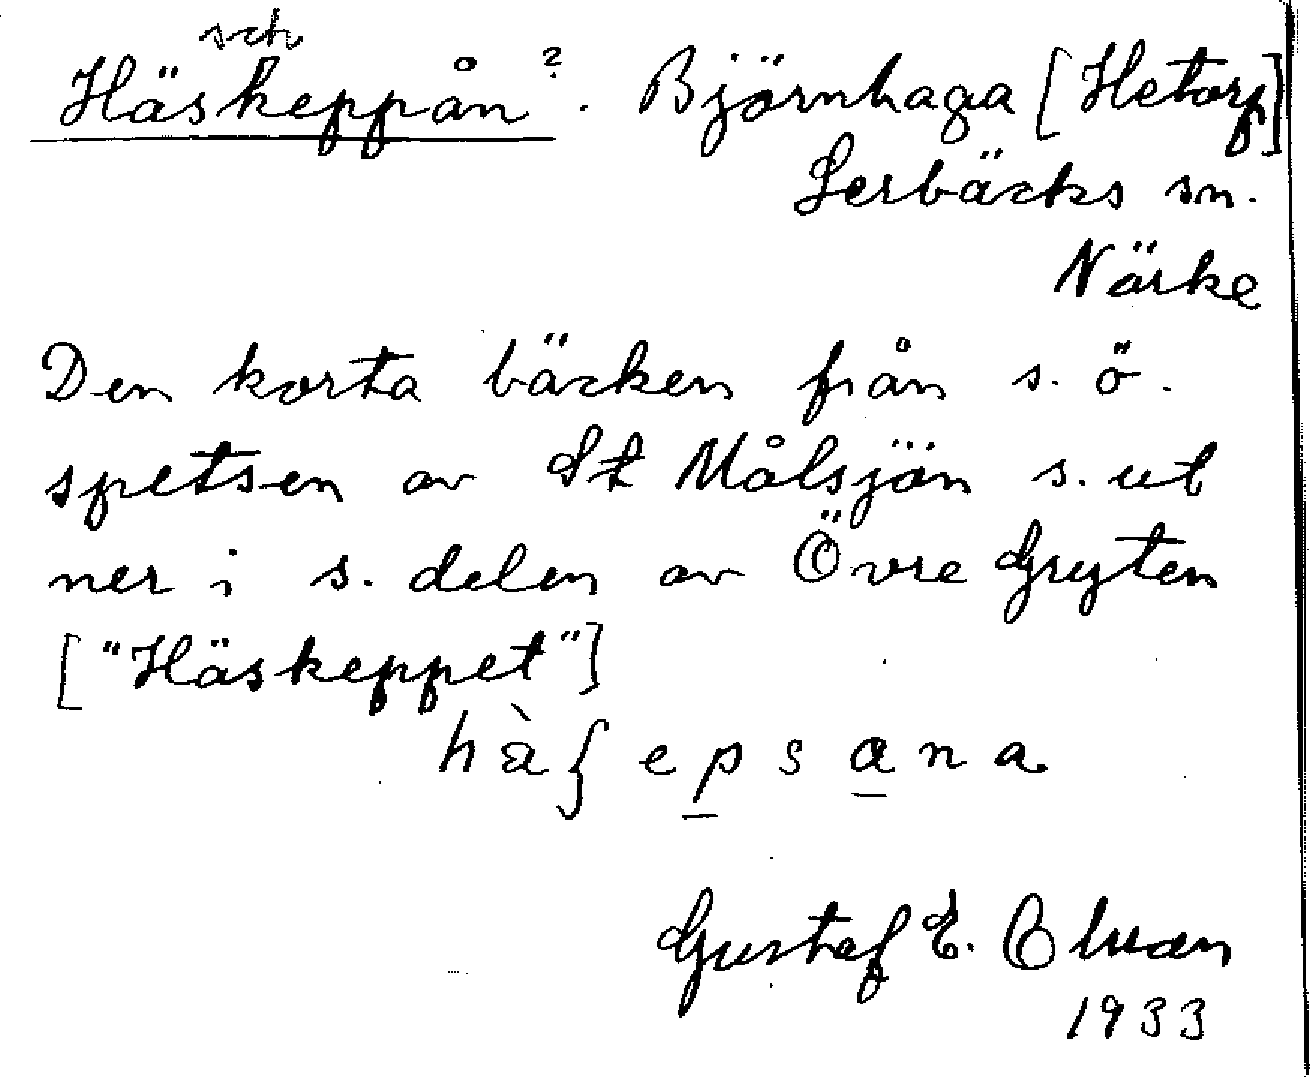 sch
Häskeppån?. Björnhaga [Hetorp]
Lerbäcks sn.
Närke
Den korta bäcken från s.ö.
spetsen av St Målsjön s.ut
ner i s. delen av Övre Gryten
["Häskeppet"]
hàʃepsana
Gustaf E. Olvan
1933